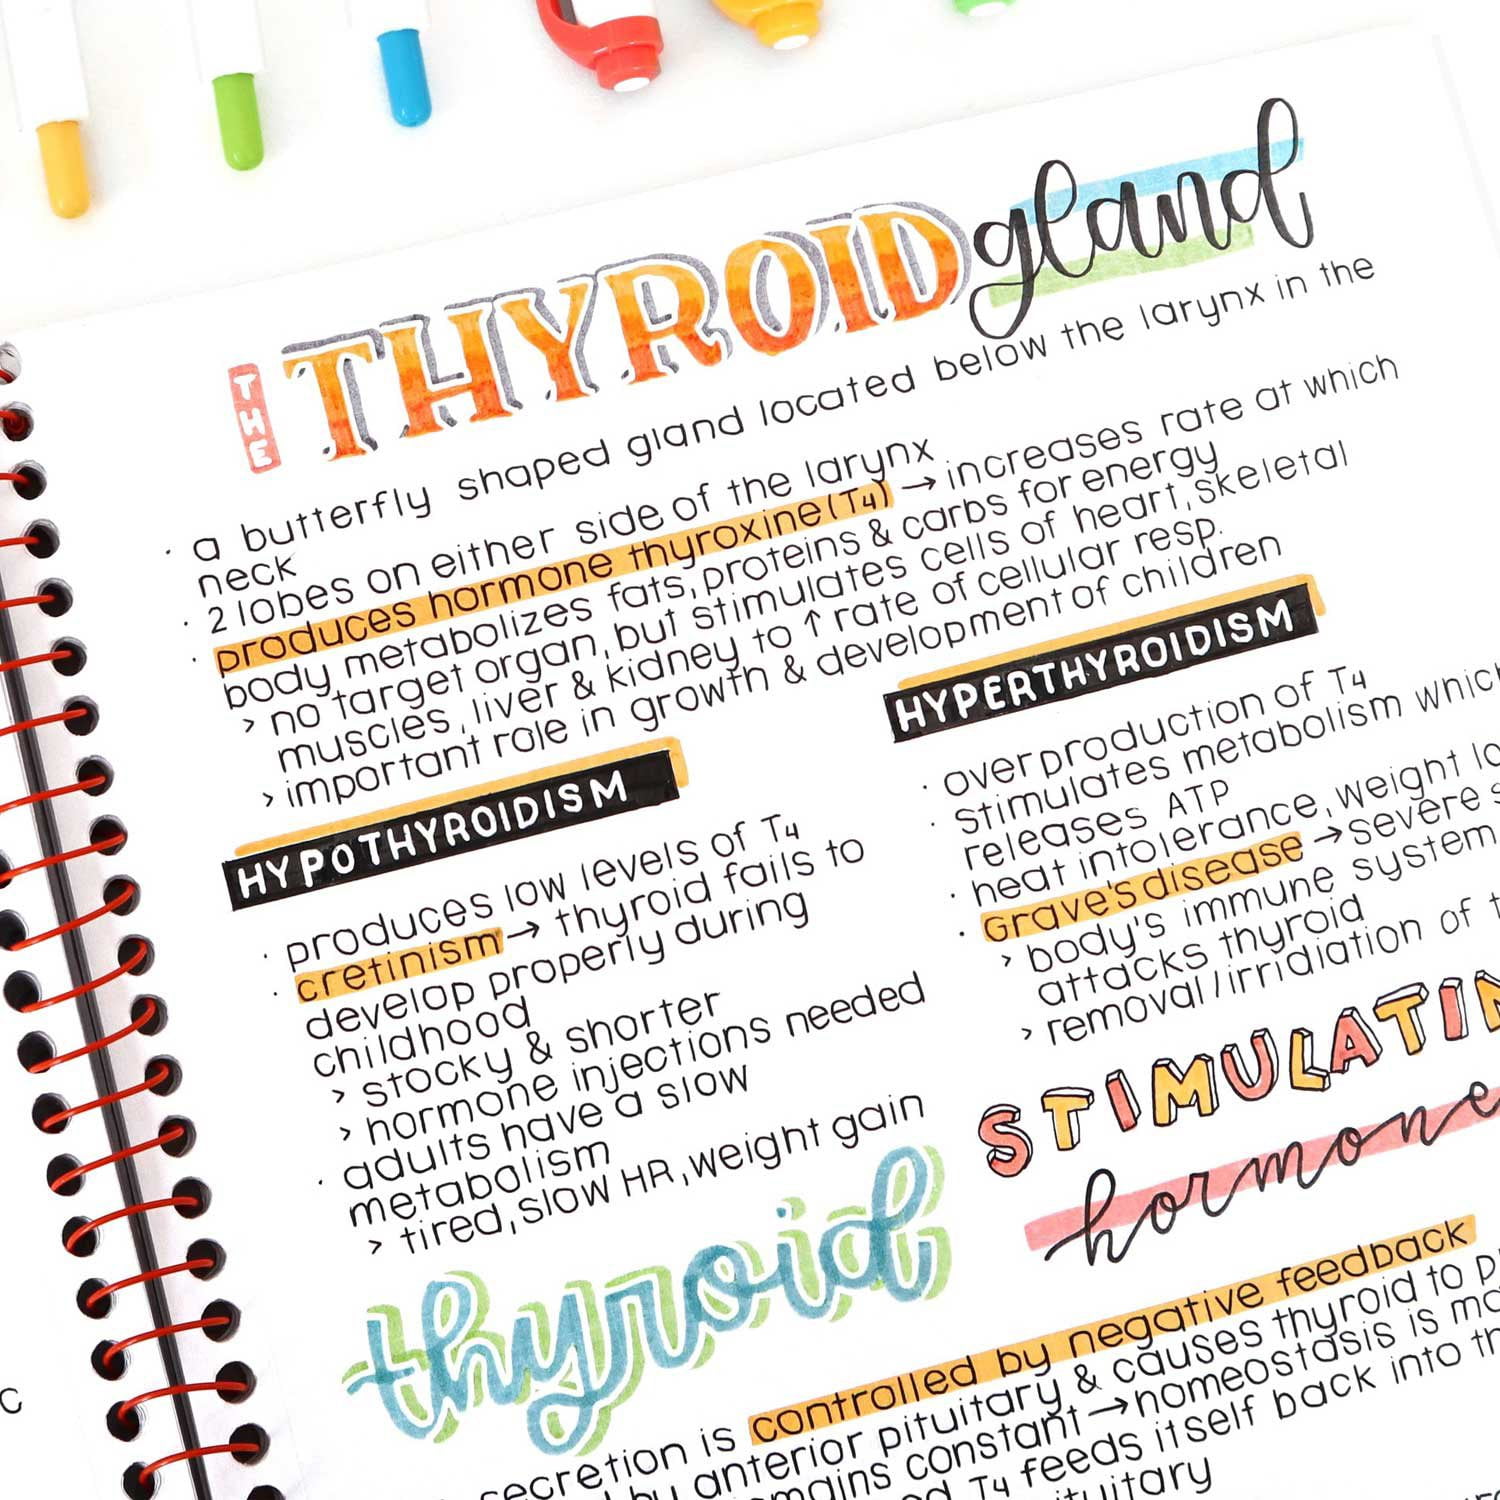 THE THYROID gland
· a butterfly shaped gland located below the larynx in the
neck
· 2 lobes on either side of the larynx
· produces hormone thyroxine (T4) → increases rate at which
body metabolizes fats, proteins & carbs for energy
> no target organ, but stimulates cells of heart, skeletal
muscles, liver & kidney to ↑ rate of cellular resp.
> important role in growth & development of children
HYPOTHYROIDISM
· produces low levels of T4
· cretinism → thyroid fails to
develop properly during
childhood
> stocky & shorter
> hormone injections needed
· adults have a slow
metabolism
> tired, slow HR, weight gain
HYPERTHYROIDISM
· overproduction of T4
· stimulates metabolism which
releases ATP
· heat intolerance, weight lo
· Grave's disease → severe s
> body's immune system
attacks thyroid
> removal/irridiation of t
thyroid
STIMULATIN
hormone
secretion is controlled by negative feedback
by anterior pituitary & causes thyroid to p
mains constant → homeostasis is ma
T4 feeds itself back into th
ituitary
C